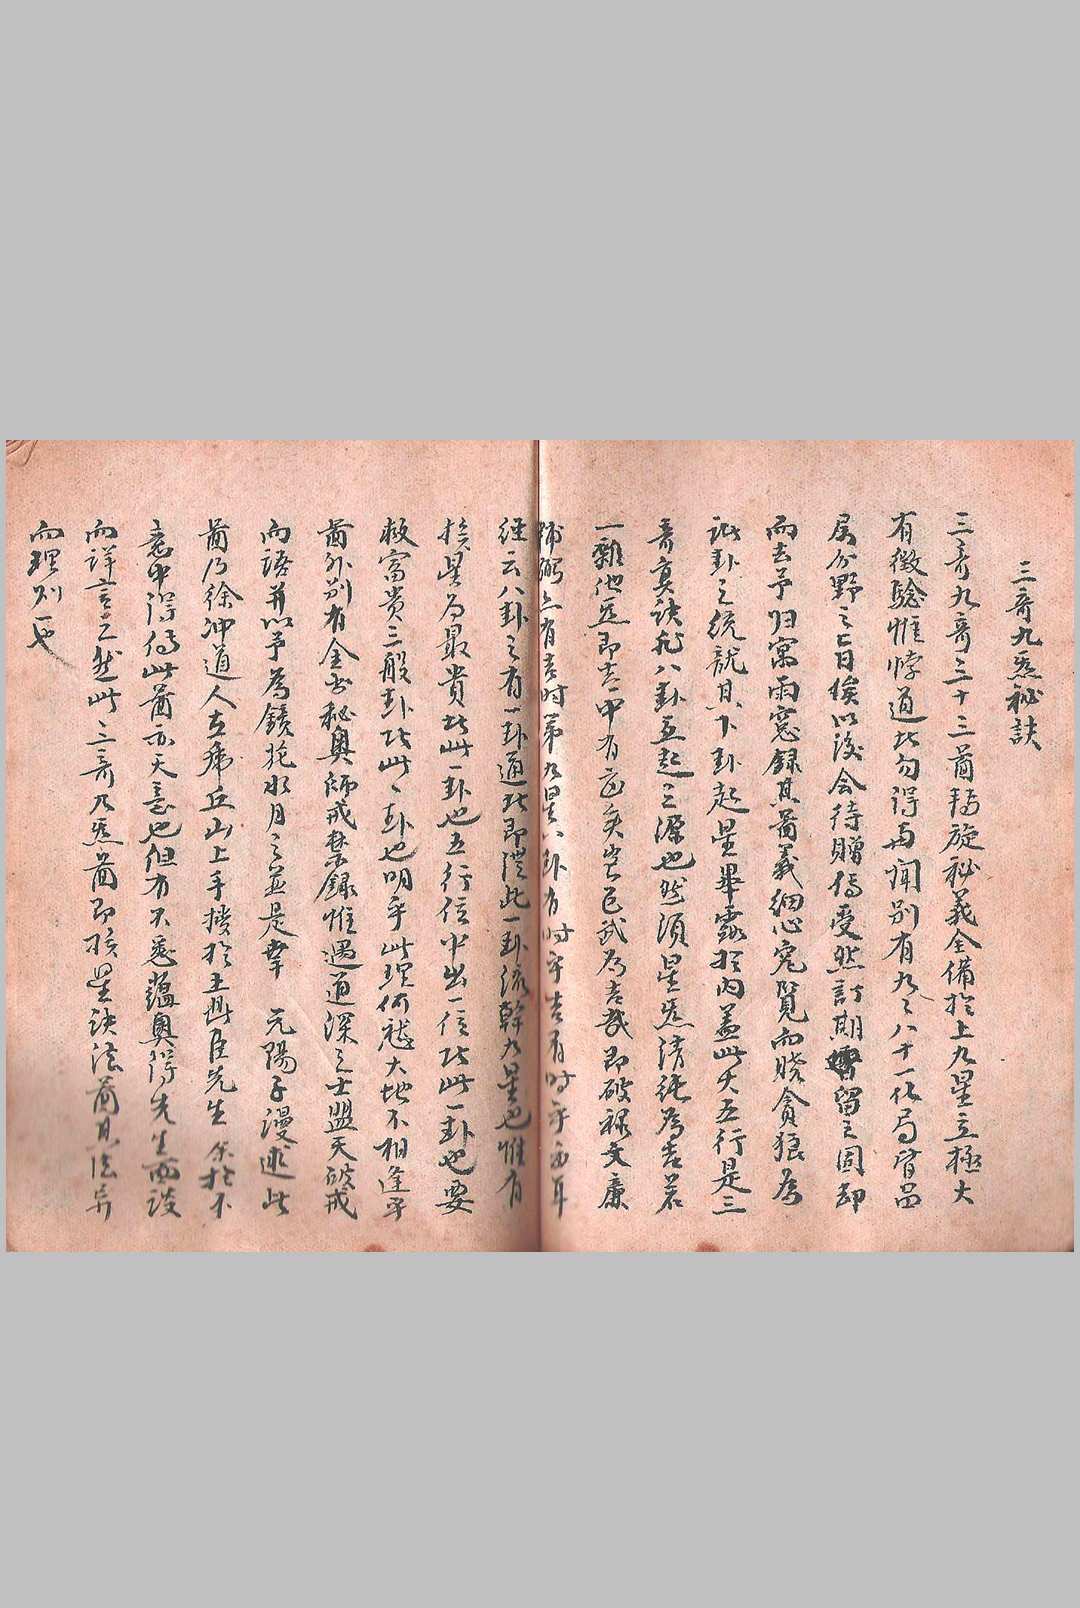 三奇九炁秘訣
三奇九奇三十三圖轉旋秘義全備於上九星立極大
有徵驗惟悖道比勿得与聞别有九九八十一化局皆品
房分野之七日俟以後会待贈傳受然訂期留之固却
而去予归寓雨窓録其圖義細心究覧而曉貪狼為
卦之統就貝下卦起星畢露於内蓋此大五行是三
奇真訣於八卦五起之源也然須星炁清純為吉若
一雜他炁即吉中有凶矣豈巨武為吉哉即破禄文廉
輔弼亦有吉时第九星八卦有时守吉有时守凶耳
經云八卦之有一卦通此即從此一卦統幹九星也惟有
挨星为最貴此一卦也五行位中出一位此一卦也要
救富貴三般卦此一卦也明乎此理何愁大地不相逢乎
圖外别有金书秘奥師戒禁録惟遇道深之士盟天破戒
而語并以予為鏡花水月之並是幸 元陽子漫述此
圖乃徐冲道人在席丘山上手授於王鼎臣先生余於不
意中得傳此圖亦天意也但有不悉蘊奥得先生面談
而詳言之然此三奇九炁圖即挨星訣法圖其法异
而理则一也